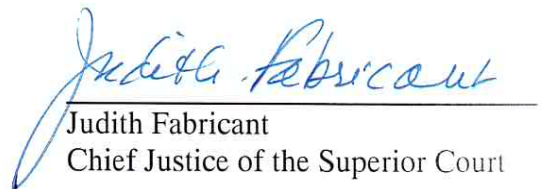 Judith Fabricant
Judith Fabricant
Chief Justice of the Superior Court